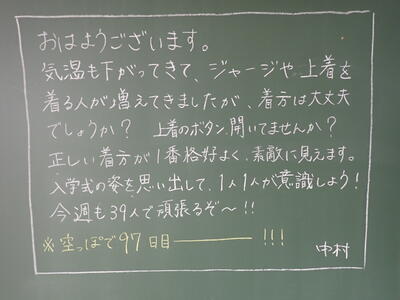 おはようございます。
気温も下がってきて、ジャージや上着を
着る人が増えてきましたが、着方は大丈夫
でしょうか？ 上着のボタン開いてませんか？
正しい着方が1番格好よく、素敵に見えます。
入学式の姿を思い出して、1人1人が意識しよう！
今週も39人で頑張るぞ〜!!
※空っぽで97日目――― !!!
中村